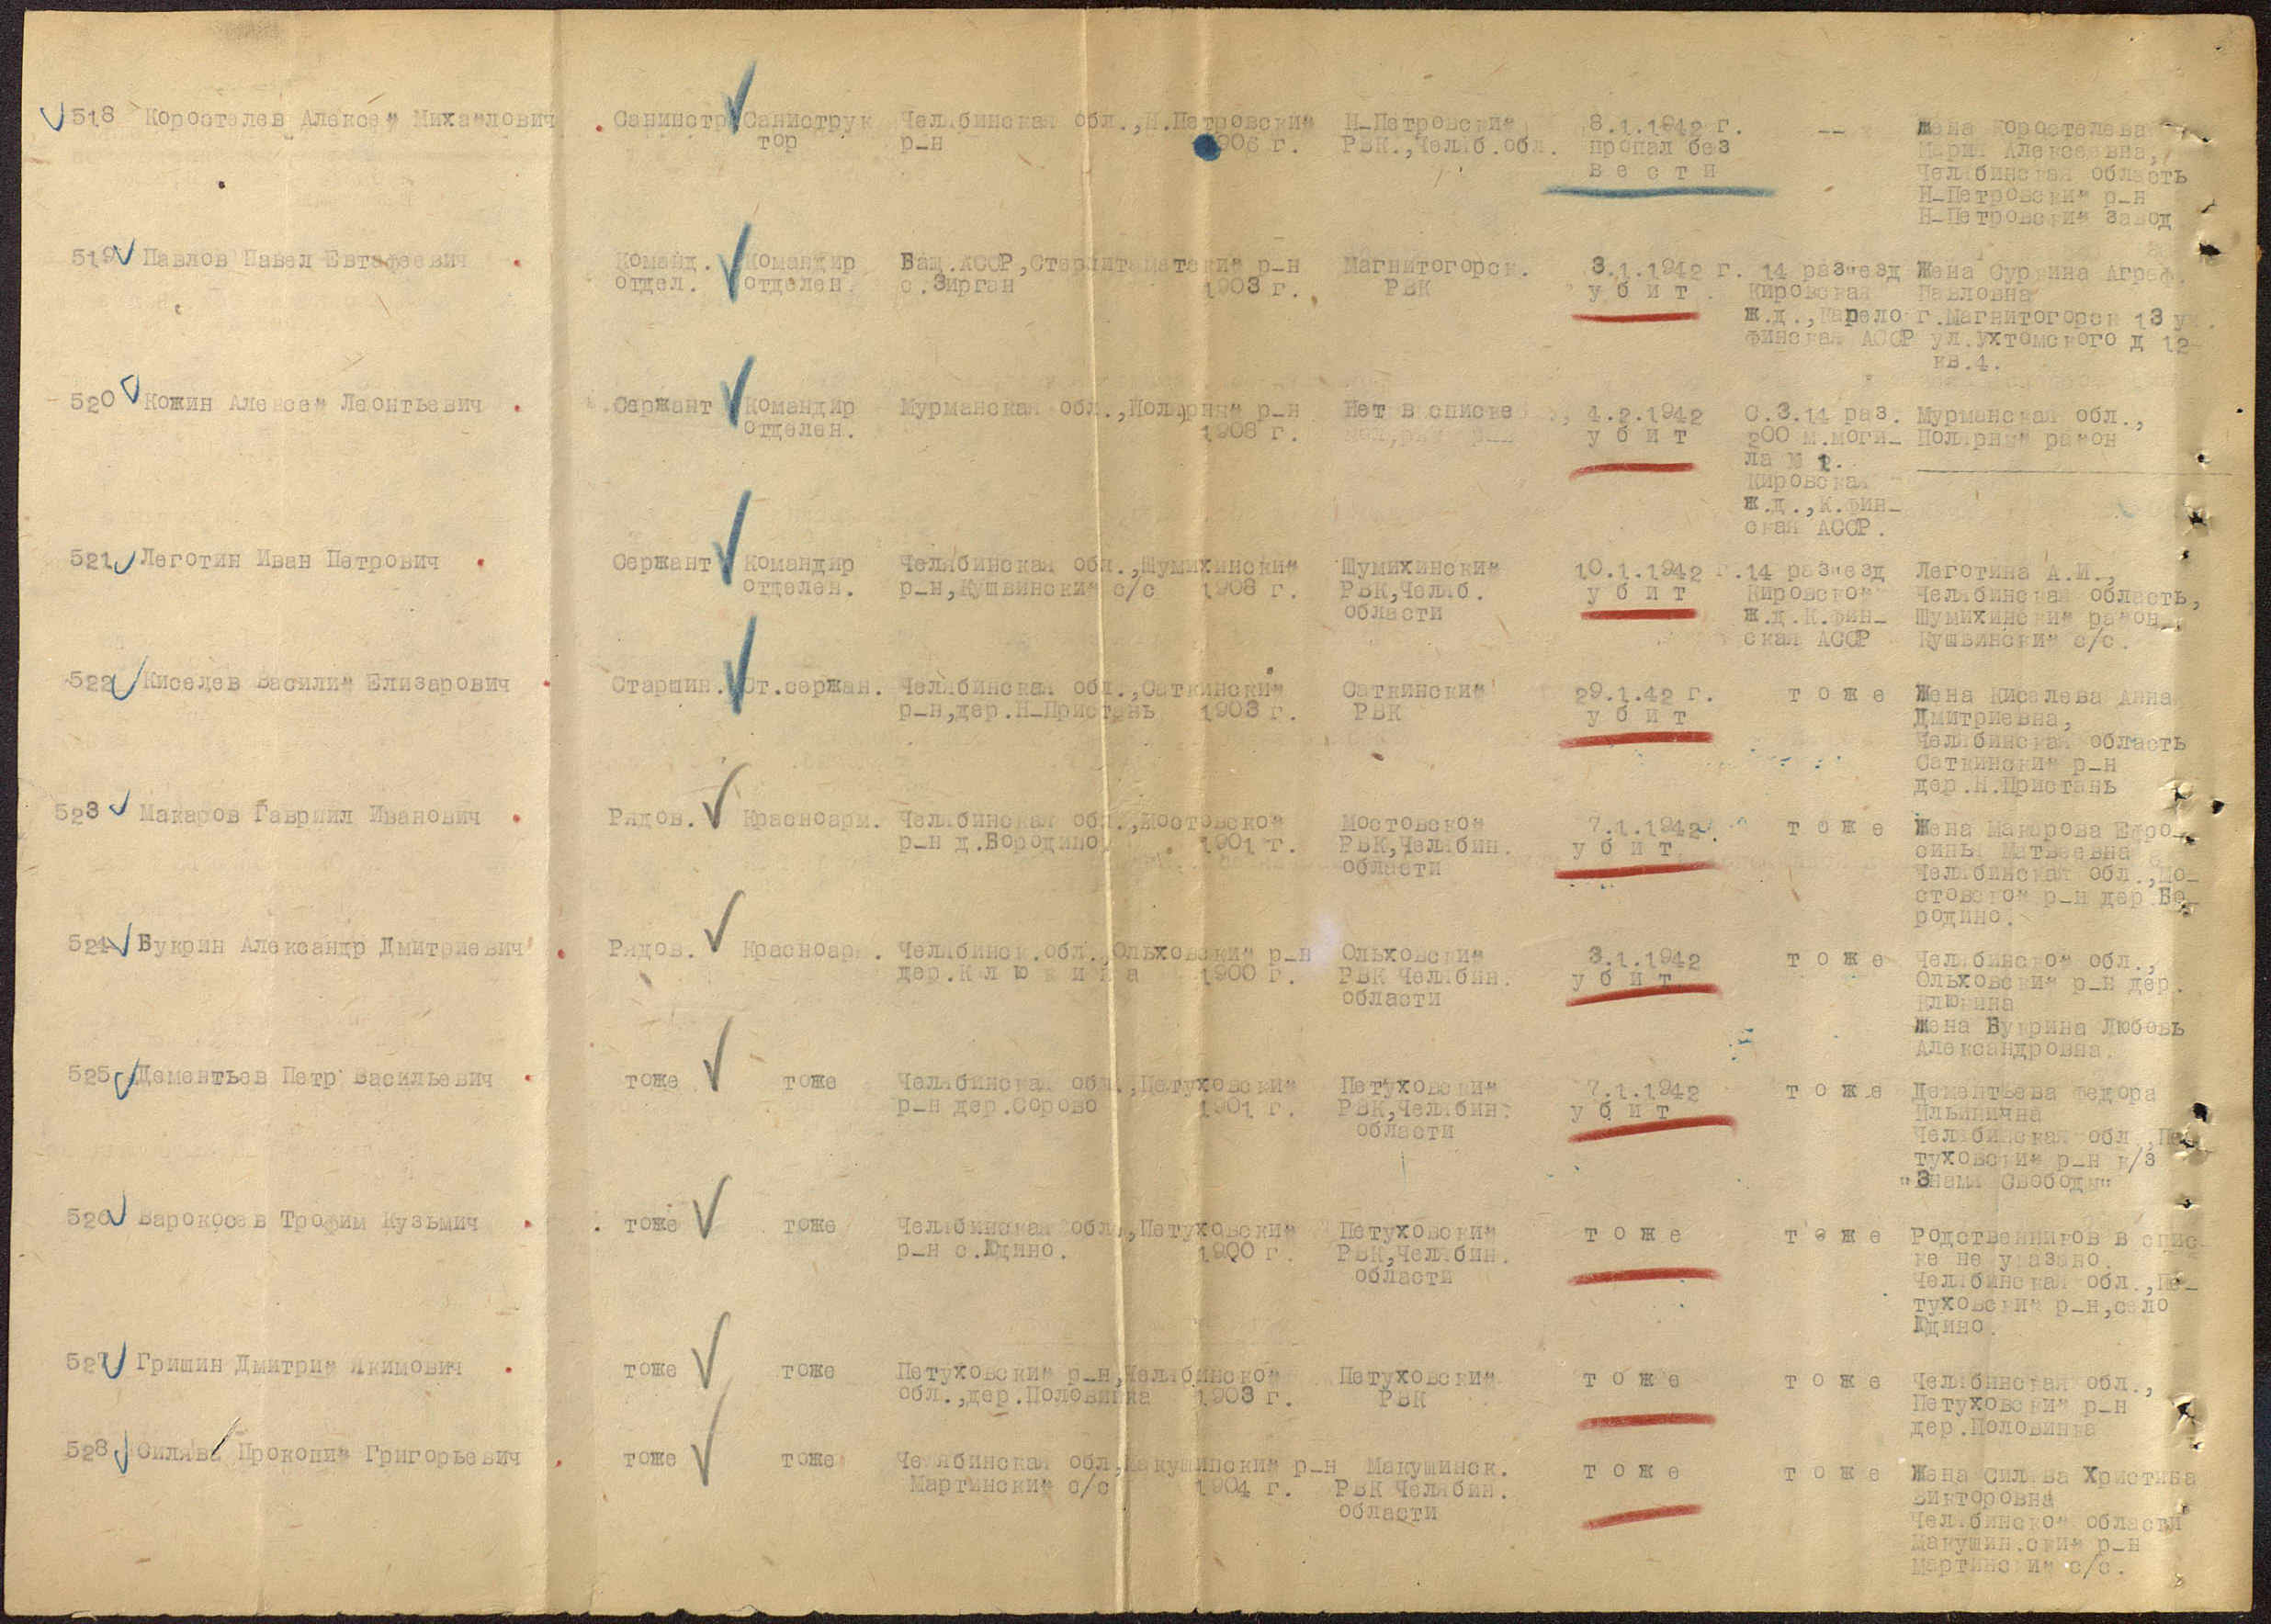 518 Коростелев Алексей Михайлович Санинстр Саниструк Челябинская обл.,Н.Петровский Н-Петровский 8.1.1942 г. -- жена Коростелева
тор р-н 1906 г. РВК.,Челяб.обл. пропал без Мария Алексеевна,
вести Челябинская область
Н-Петровский р-н
Н-Петровский завод
519 Павлов Павел Евтафеевич Команд. Командир Баш.АССР,Стерлитаматский р-н Магнитогорск. 3.1.1942 г. 14 разъезд Жена Суркина Аграф.
отдел. отделен. с.Зирган 1903 г. РВК убит Кировская Павловна
ж.д.,Карело г.Магнитогорск 13 уч.
финская АССР ул.Ухтомского д 12
кв.4.
520 Кожин Алексей Леонтьевич Сержант Командир Мурманская обл.,Полярный р-н Нет в списке 4.2.1942 С.З.14 раз. Мурманская обл.,
отделен. 1908 г. убит 200 м.моги- Полярный район
ла №
Кировская
ж.д.,К.фин-
ская АССР.
521 Леготин Иван Петрович Сержант Командир Челябинская обл.,Шумихинский Шумихинский 10.1.1942 г. 14 разъезд Леготина А.И.,
отделен. р-н,Кушвинский с/с 1908 г. РВК,Челяб. убит Кировской Челябинская область,
области ж.д.К.фин- Шумихинский район,
ская АССР Кушвинский с/с.
522 Киселев Василий Елизарович Старшин. Ст.сержан. Челябинская обл.,Саткинский Саткинский 29.1.42 г. тоже Жена Киселева Анна
р-н,дер.Н-Пристань 1903 г. РВК убит Дмитриевна,
Челябинская область
Саткинский р-н
дер.Н.Пристань
523 Макаров Гавриил Иванович Рядов. Красноарм. Челябинская обл.,Мостовской Мостовской 7.1.1942. тоже Жена Макарова Ефро-
р-н д.Бородино 1901 г. РВК,Челябин. убит синья Матвеевна
области Челябинская обл.,Мо-
стовской р-н дер.Бо-
родино.
524 Букрин Александр Дмитриевич Рядов. Красноарм. Челябинск.обл.,Ольховский р-н Ольховский 3.1.1942 тоже Челябинской обл.,
дер.Клюкина 1900 г. РВК Челябин. убит Ольховский р-н дер.
области Клюкина
жена Букрина Любовь
Александровна.
525 Дементьев Петр Васильевич тоже тоже Челябинская обл.,Петуховский Петуховский 7.1.1942 тоже Дементьева Федора
р-н дер.Сорово 1901 г. РВК,Челябин. убит Ильинична
области Челябинская обл.,Пе-
туховский р-н к/з
"Знамя Свободы"
526 Варокосев Трофим Кузьмич тоже тоже Челябинская обл.,Петуховский Петуховский тоже тоже Родственников в спис-
р-н с.Юдино. 1900 г. РВК,Челябин. ке не указано.
области Челябинская обл.,Пе-
туховский р-н,село
Юдино.
527 Гришин Дмитрий Якимович тоже тоже Петуховский р-н,Челябинской Петуховский тоже тоже Челябинская обл.,
обл.,дер.Половинка 1903 г. РВК Петуховский р-н
дер.Половинка
528 Силява Прокопий Григорьевич тоже тоже Челябинская обл,Макушинский р-н Макушинск. тоже тоже Жена Силява Христина
Мартинский с/с 1904 г. РВК Челябин. Викторовна
области Челябинской области
Макушин.ский р-н
Мартинский с/с.